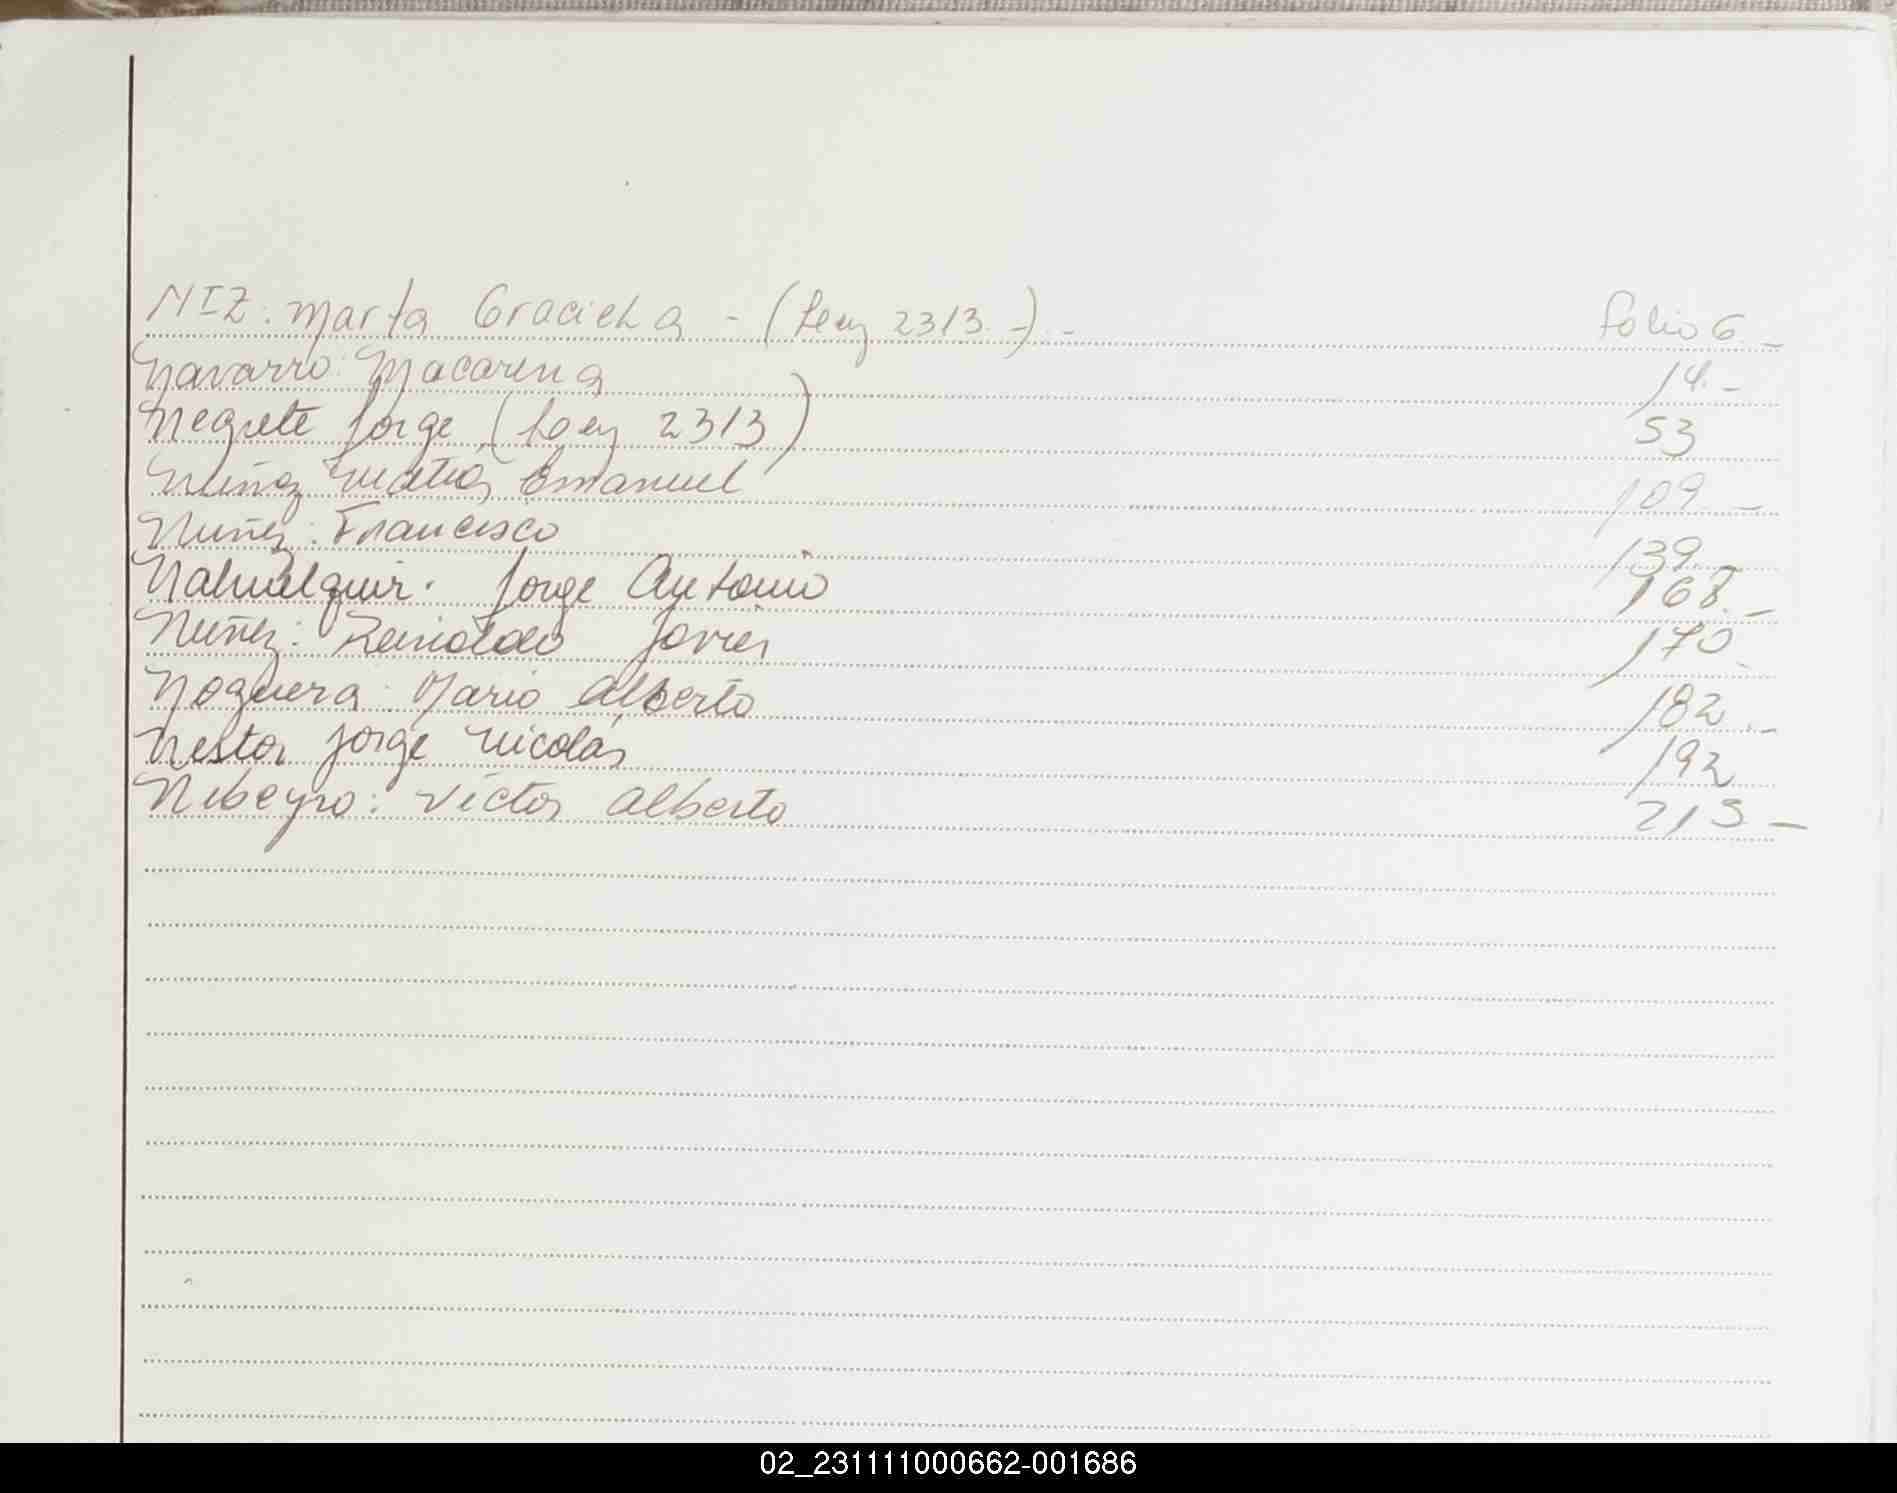 NIZ: Marta Graciela - (Ley 2313.-).- folio 6.-
Navarro: Macarena 14.-
Negrete Jorge (Ley 2313) 53
Muñoz Matías Emanuel 109.-
Nuñez: Francisco 139.-
Nahuelquir. Jorge Antonio 168.-
Nuñez: Reinaldo Javier 170.-
Noguera: Mario Alberto 182.-
Nestor Jorge Nicolás 192
Nibeyro: Victor Alberto 213-
02_231111000662-001686